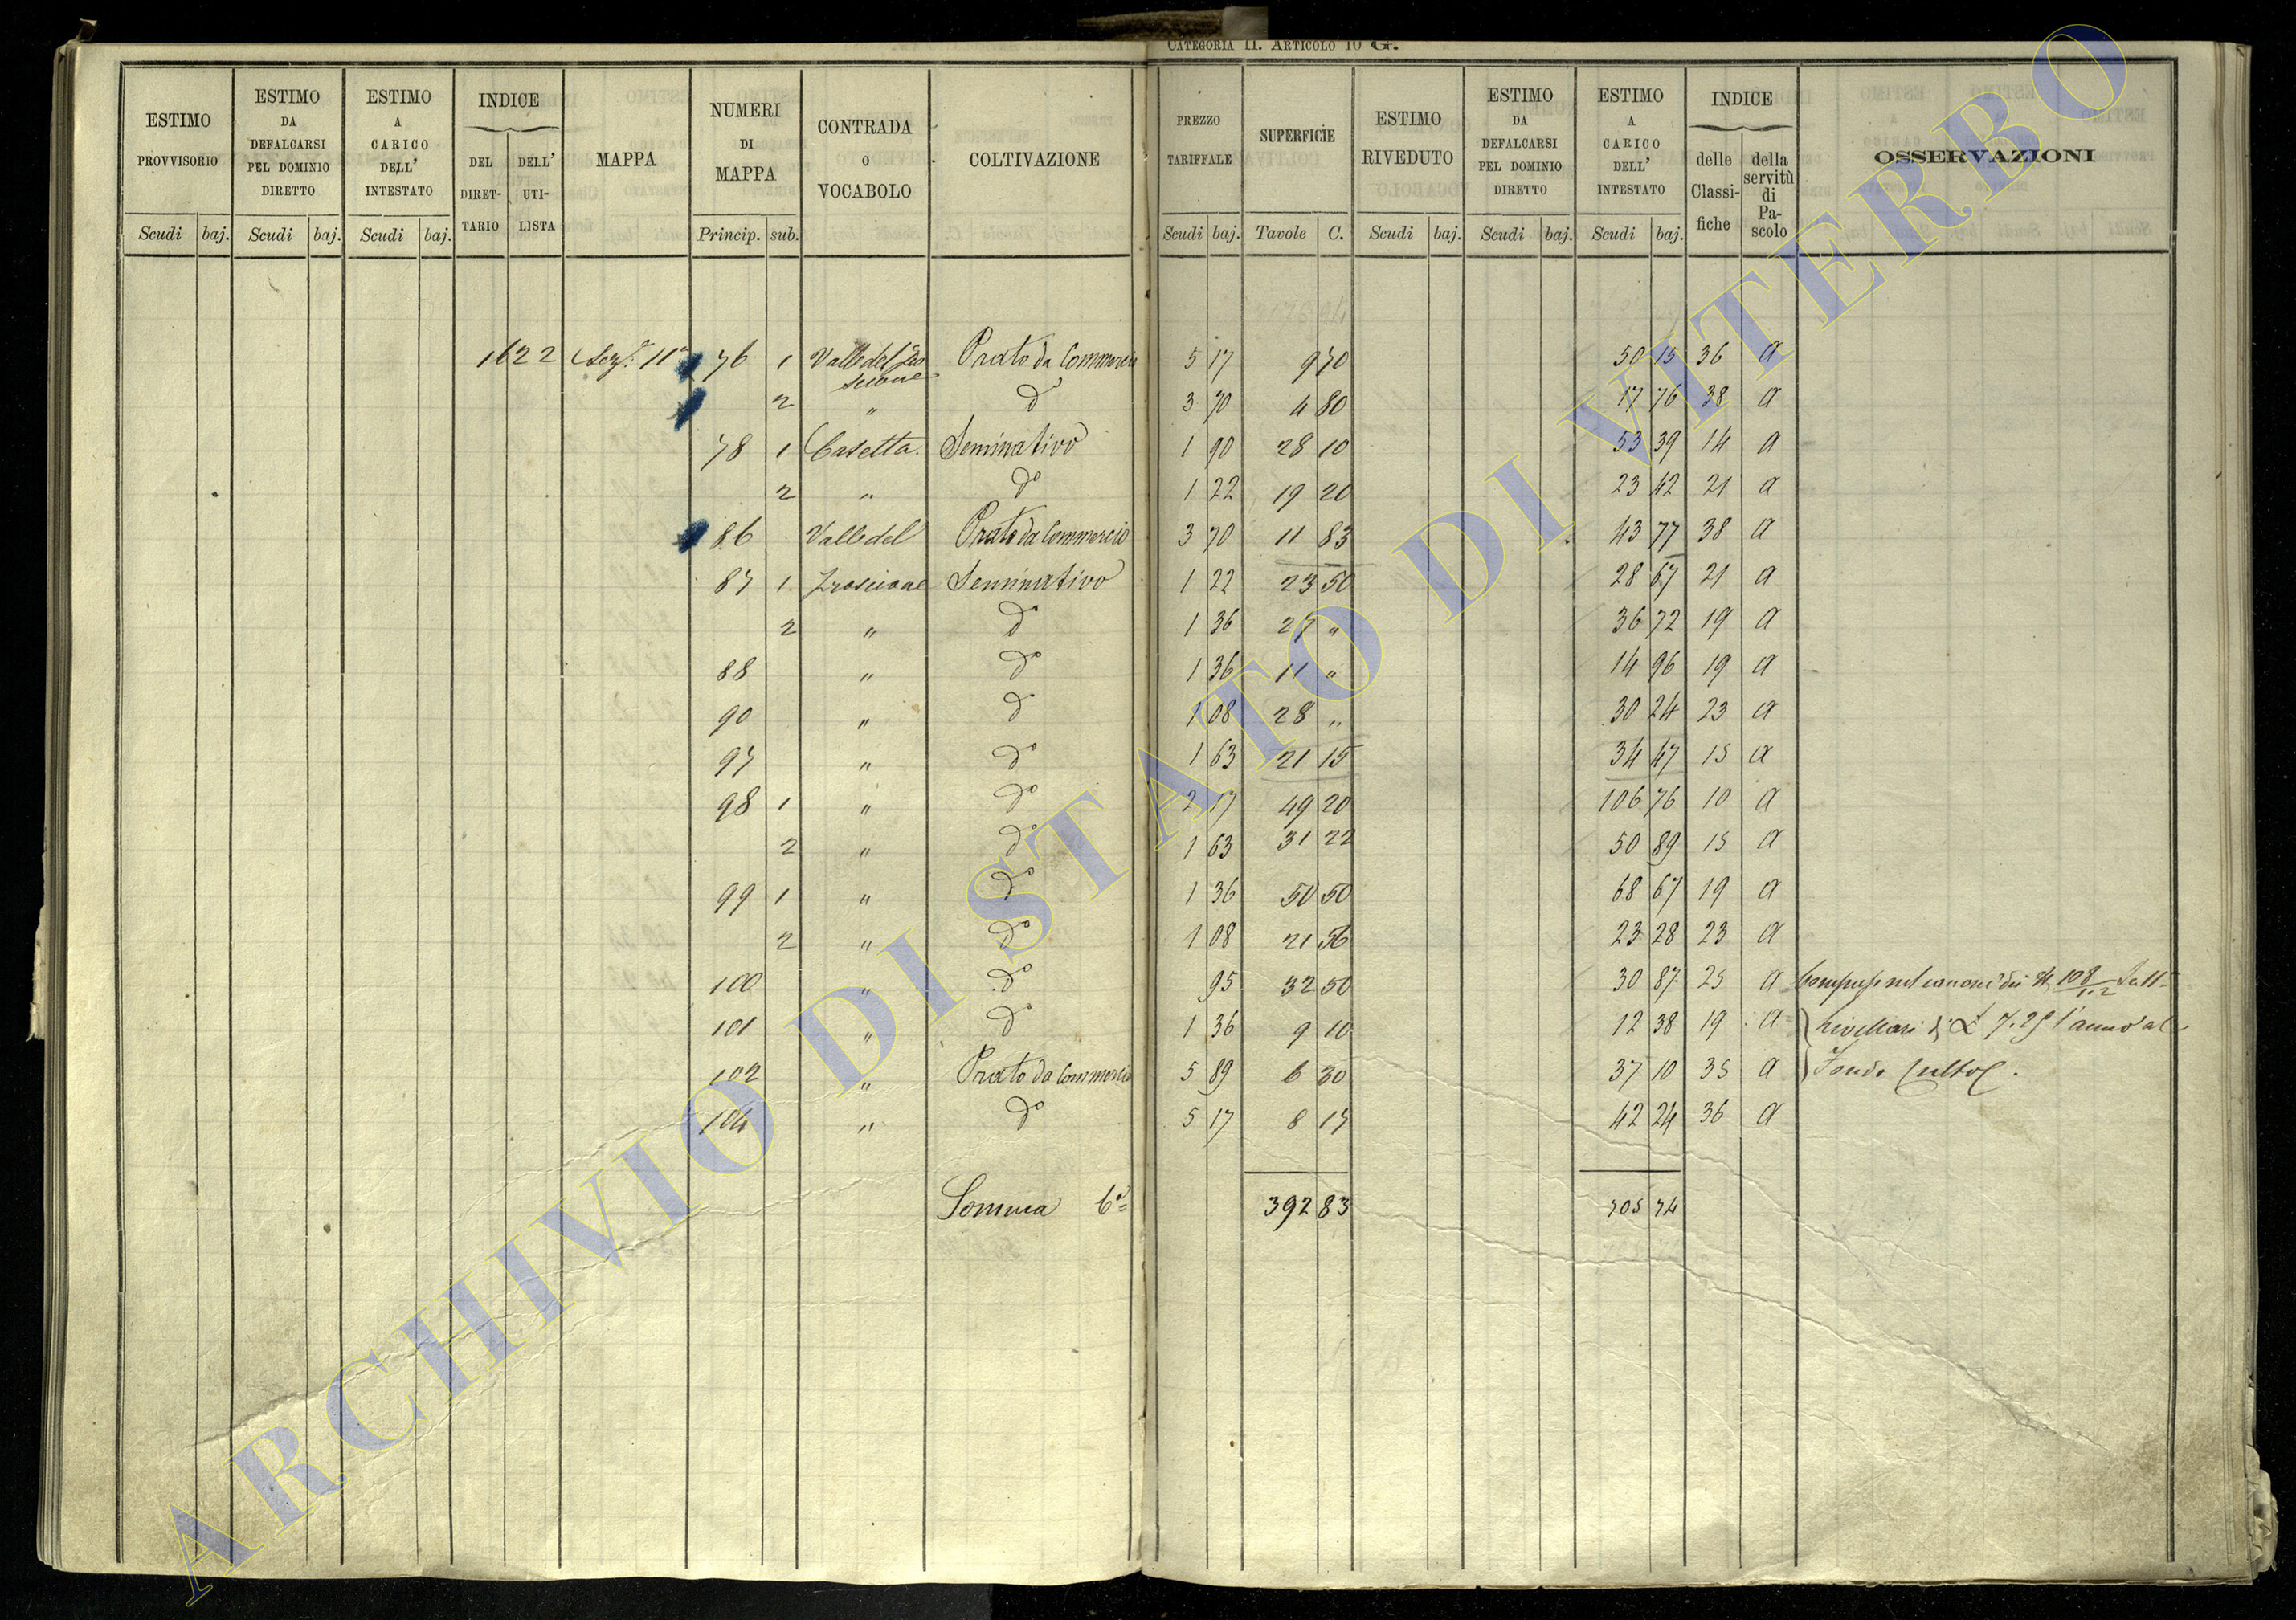 CATEGORIA II. ARTICOLO 10 G.
ESTIMO PROVVISORIO | ESTIMO DA DEFALCARSI PEL DOMINIO DIRETTO | ESTIMO A CARICO DELL' INTESTATO | INDICE DEL DIRETTARIO | DELL' UTILISTA | MAPPA | NUMERI DI MAPPA | CONTRADA O VOCABOLO | COLTIVAZIONE | PREZZO TARIFFALE | SUPERFICIE | ESTIMO RIVEDUTO | ESTIMO DA DEFALCARSI PEL DOMINIO DIRETTO | ESTIMO A CARICO DELL' INTESTATO | INDICE delle Classifiche | della servitù di Pascolo | OSSERVAZIONI
Scudi baj. Scudi baj. Scudi baj. Princip. sub. Scudi baj. Tavole C. Scudi baj. Scudi baj. Scudi baj.
1622 Sez.e 11a 76 1 Valle del Fro Prato da Commercio 5 17 9 70 50 15 36 a
scione
2 " do 3 70 4 80 17 76 38 a
78 1 Casetta. Seminativo 1 90 28 10 53 39 14 a
2 " do 1 22 19 20 23 42 21 a
86 Valle del Prato da Commercio 3 70 11 83 43 77 38 a
87 1 Froscione Seminativo 1 22 23 50 28 67 21 a
2 " do 1 36 27 " 36 72 19 a
88 " do 1 36 11 " 14 96 19 a
90 " do 1 08 28 " 30 24 23 a
97 " do 1 63 21 15 34 47 15 a
98 1 " do 2 17 49 20 106 76 10 a
2 " do 1 63 31 22 50 89 15 a
99 1 " do 1 36 50 50 68 67 19 a
2 " do 1 08 21 56 23 28 23 a
100 " do 95 32 50 30 87 25 a 108
1.2
101 " do 1 36 9 10 12 38 19 a livellari di £ 7.25 l'anno al
102 " Prato da Commercio 5 89 6 30 37 10 35 a Fondo
104 " do 5 17 8 17 42 24 36 a
Somma 6a 392 83 705 74
ARCHIVIO DI STATO DI VITERBO